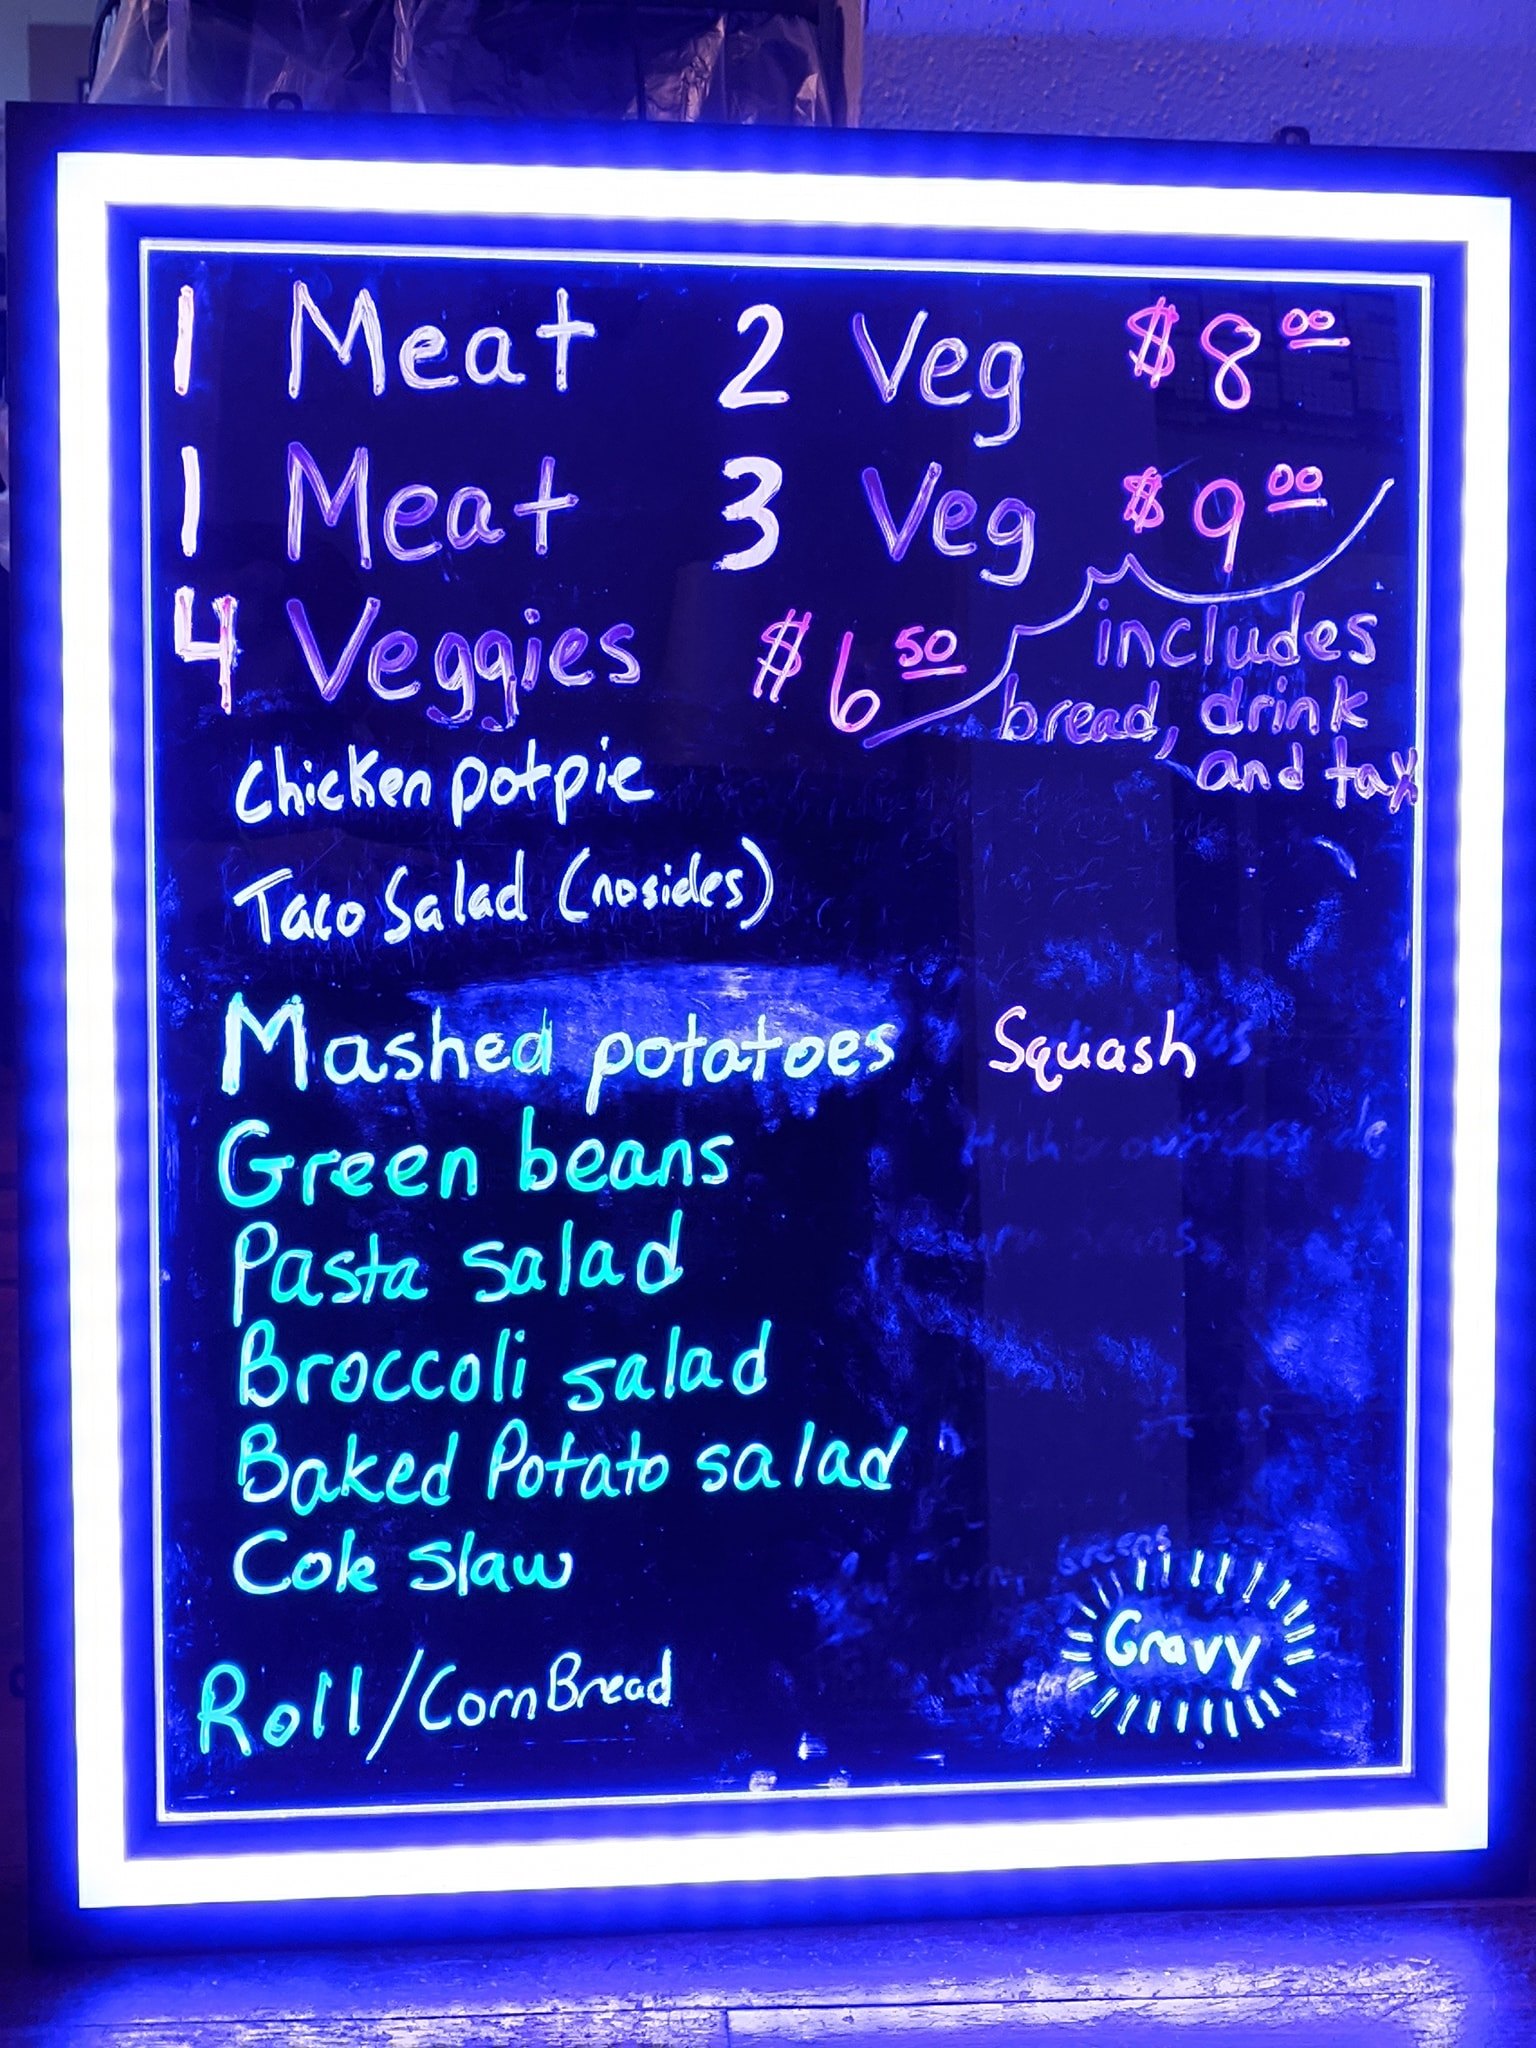 1 Meat 2 Veg $8.00
1 Meat 3 Veg $9.00
4 Veggies $6.50
includes
bread, drink
and tax
Chicken potpie
Taco Salad (no sides)
Mashed potatoes Squash
Green beans
Pasta salad
Broccoli salad
Baked Potato salad
Cole Slaw
Roll/Corn Bread
Gravy